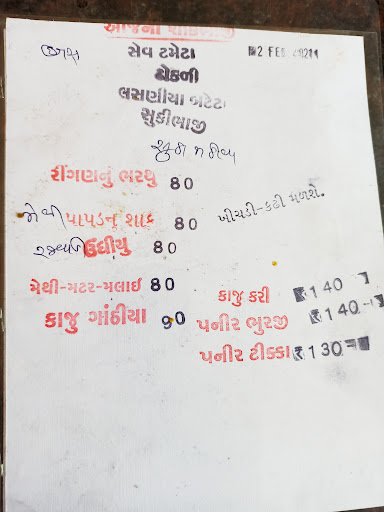 આજના શાકભાજી
સેવ ટમેટા
2 FEB 2021
ઢોકની
લસણીયા બટેટા
સુકીભાજી
રીંગણનું ભરથુ 80
મેથી પાપડનુ શાક 80
ખીચડી-કઢી મળશે.
ઉંધીયુ 80
મેથી-મટર-મલાઈ 80
કાજુ કરી ₹140
કાજુ ગાંઠીયા 90
પનીર ભુરજી ₹140
પનીર ટીક્કા ₹130